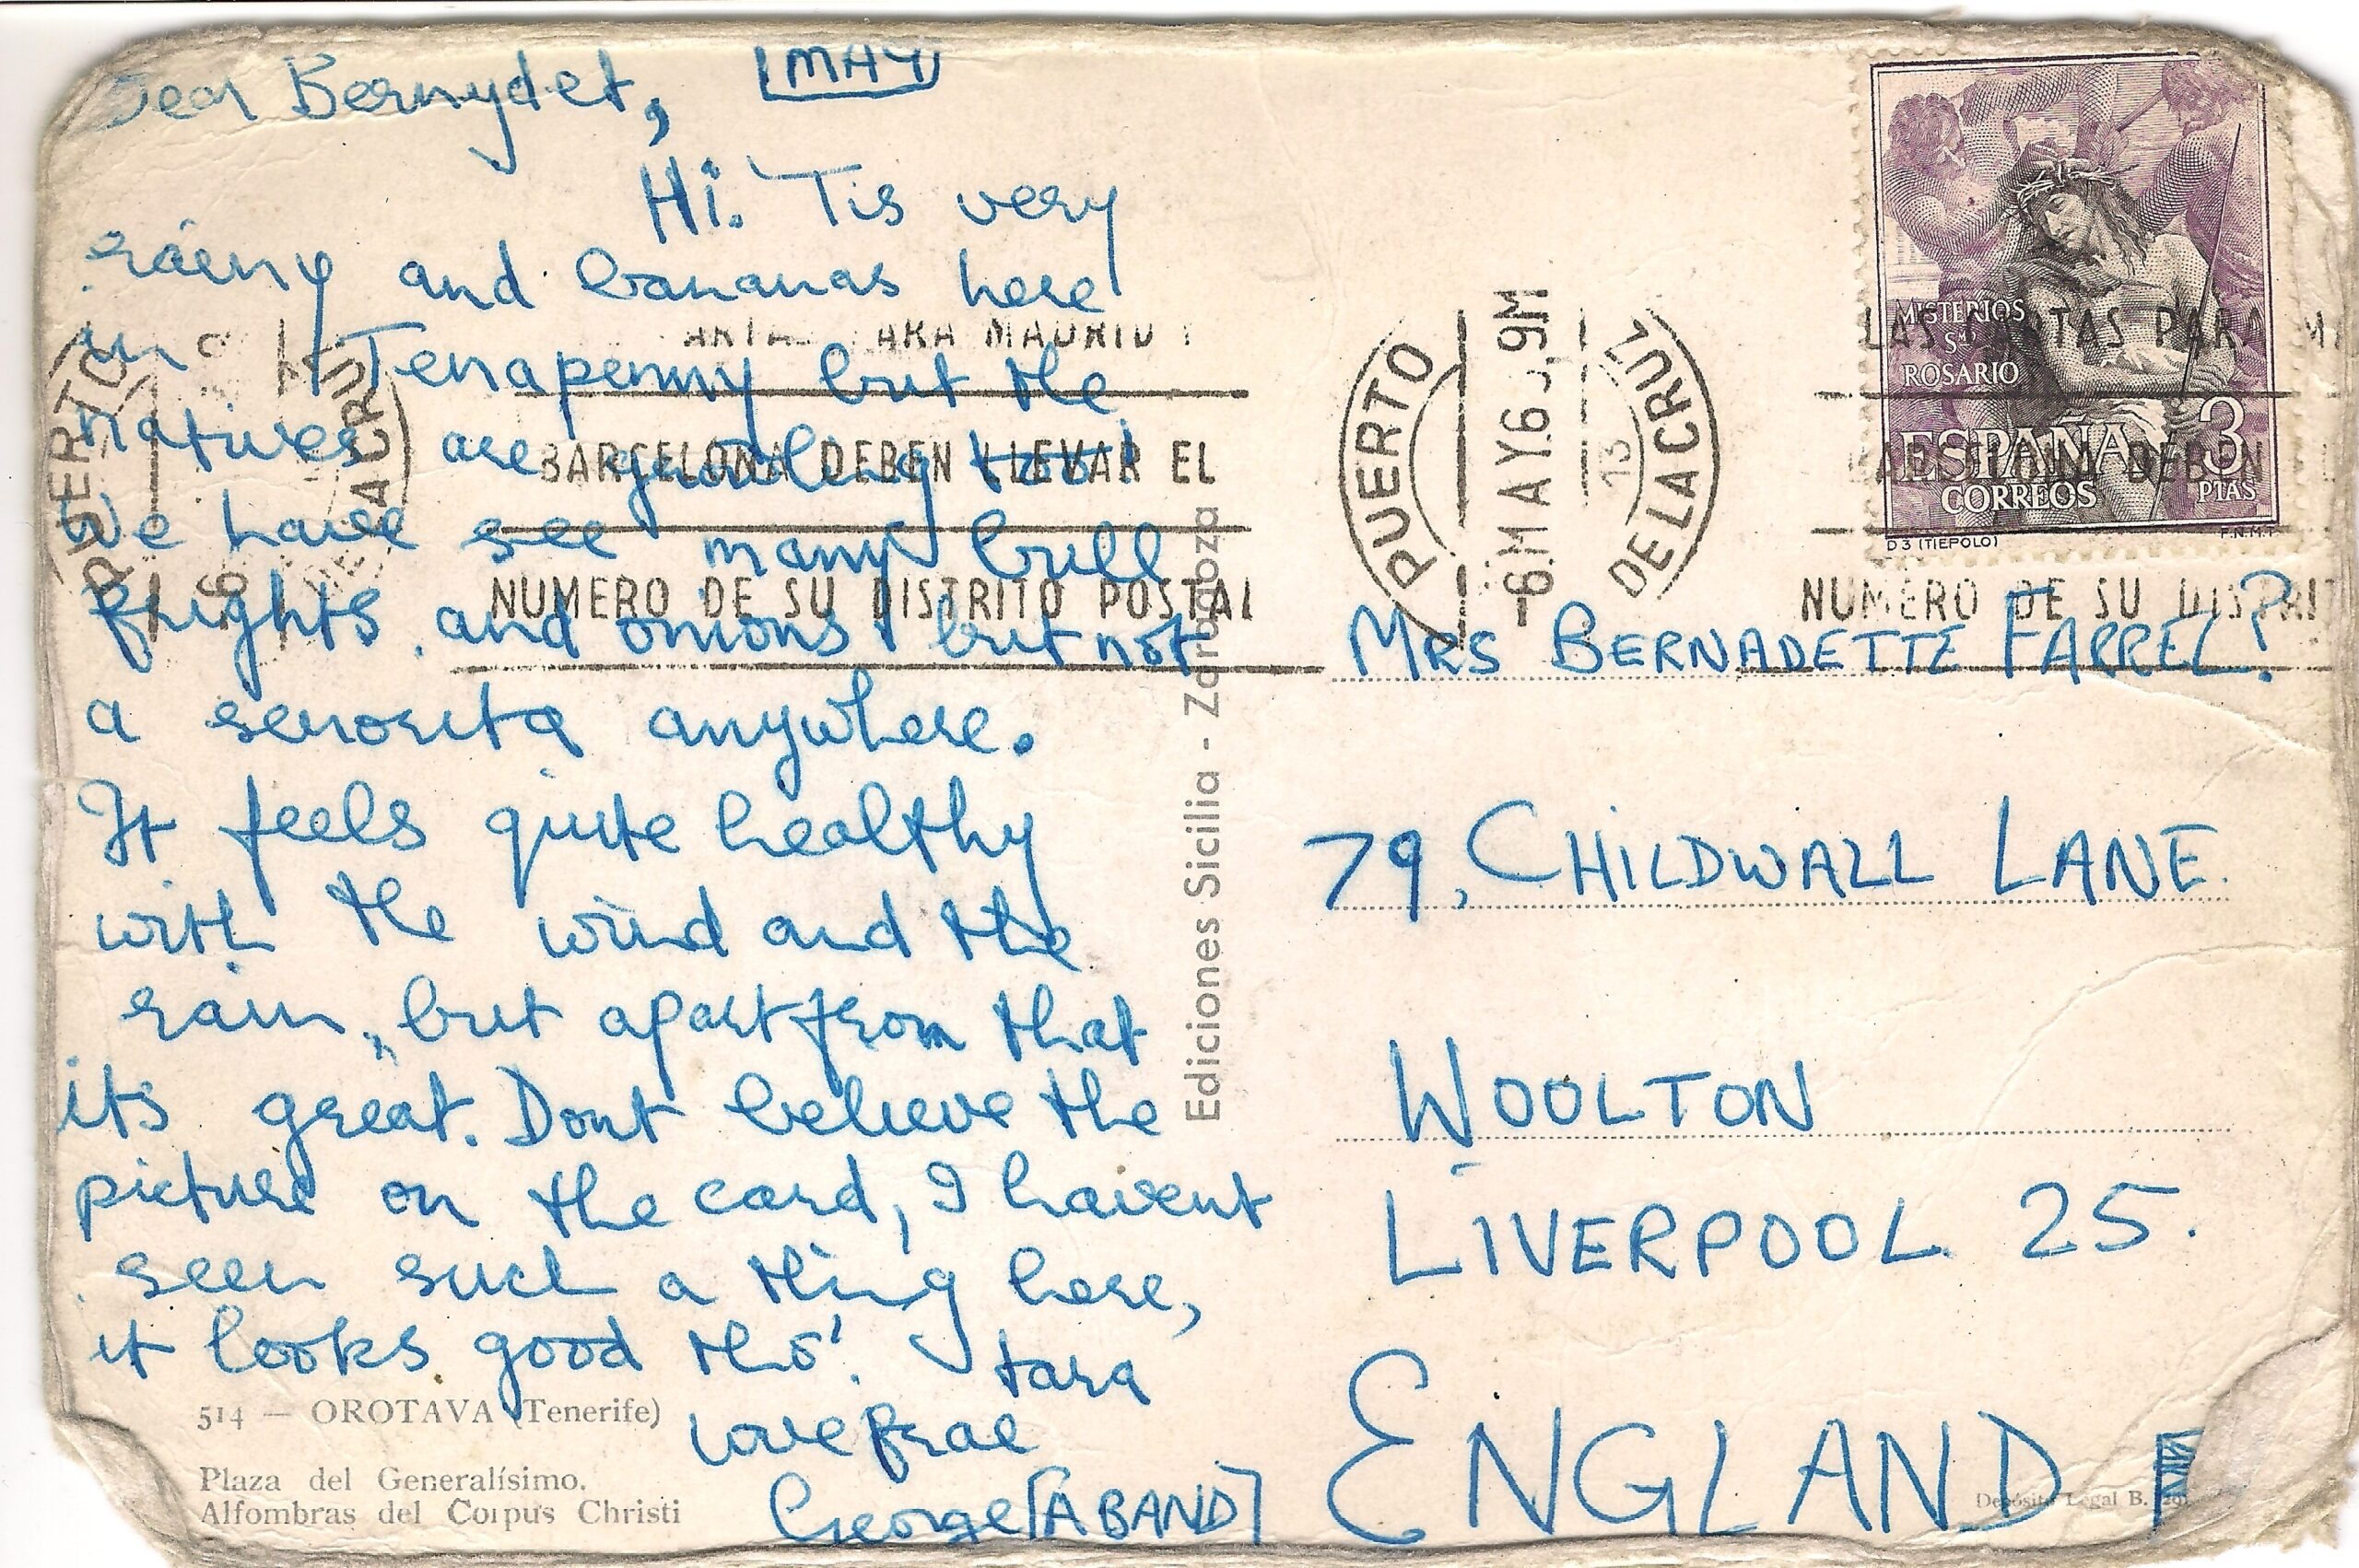 [MAY]
Dear Bernydet,
Hi. 'Tis very
rainy and bananas here
in Tenapenny but the
natives are growling too!
We have see many bull
frights and onions but not
a senorita anywhere.
It feels quite healthy
with the wind and the
rain, but apart from that
its great. Dont believe the
picture on the card, I havent
seen such a thing here,
it looks good tho'. tara
love frae
George [A BAND]
514 — OROTAVA (Tenerife)
Plaza del Generalísimo.
Alfombras del Corpus Christi
Ediciones Sicilia - Zaragoza
PUERTO DE LA CRUZ
BARCELONA DEBEN LLEVAR EL
NUMERO DE SU DISTRITO POSTAL
PUERTO DE LA CRUZ
-6.MAY.63 9M
LAS CARTAS PARA
DEBEN
NUMERO DE SU
MISTERIOS
STO
ROSARIO
ESPAÑA 3
CORREOS PTAS
D 3 (TIEPOLO) F.N.M.T
MRS BERNADETTE FARREL?
79, CHILDWALL LANE.
WOOLTON
LIVERPOOL 25.
ENGLAND
Depósito Legal B.